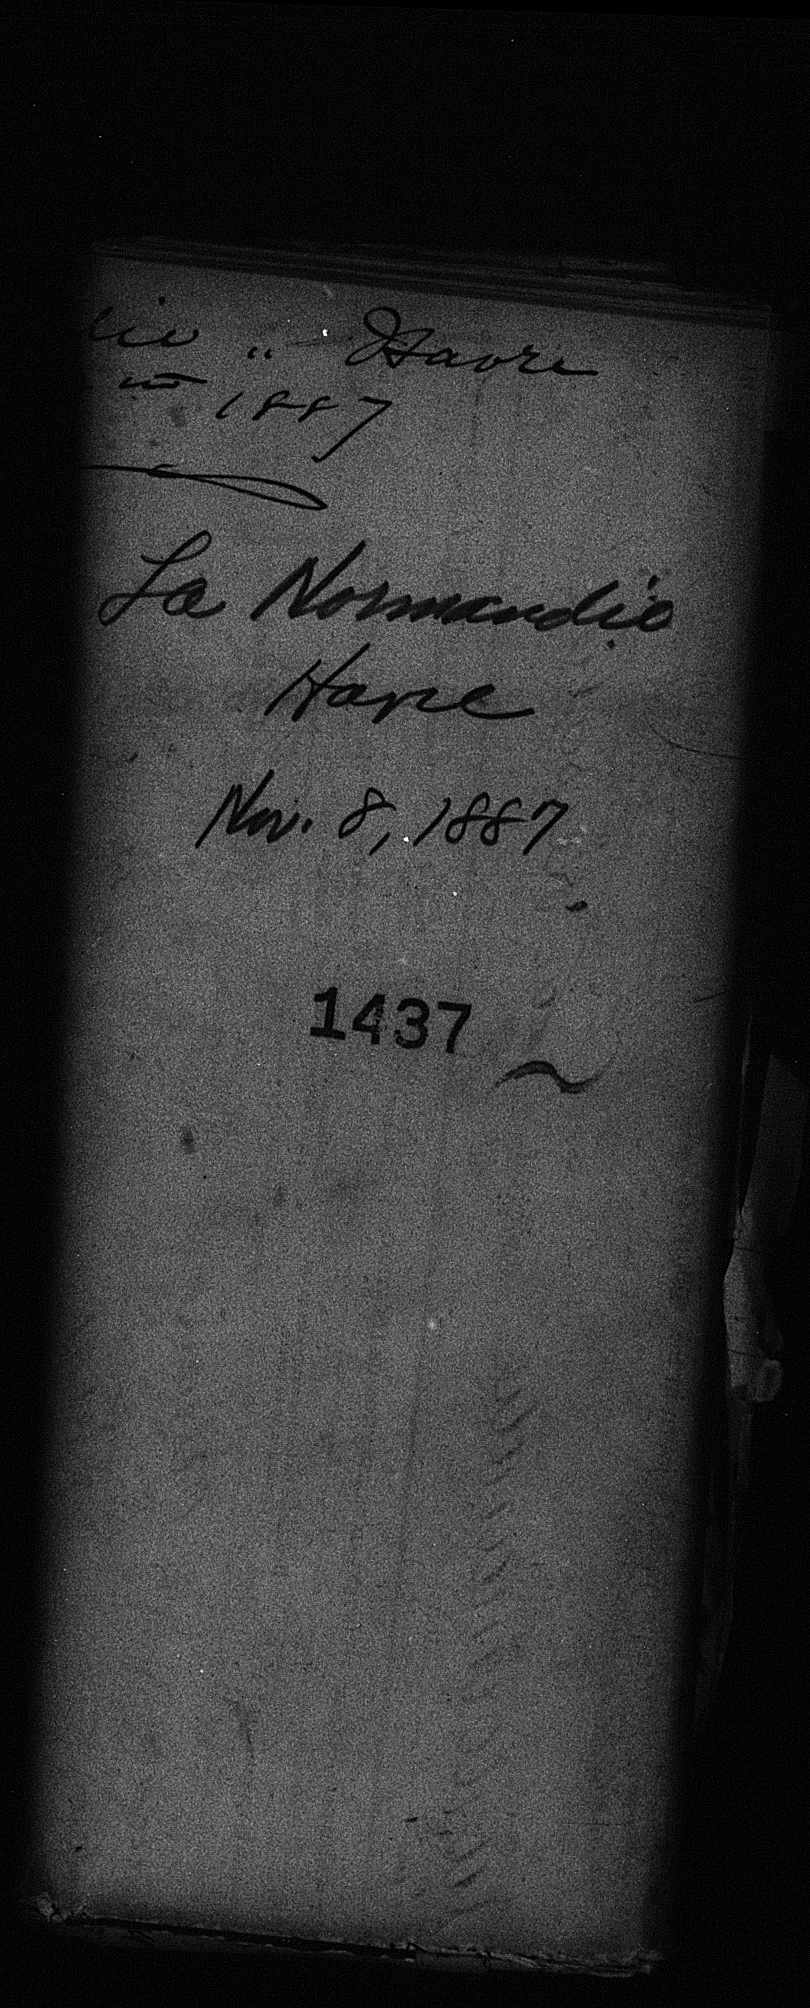 die " Havre
1887
La Normandie
Havre
Nov. 8, 1887
1437